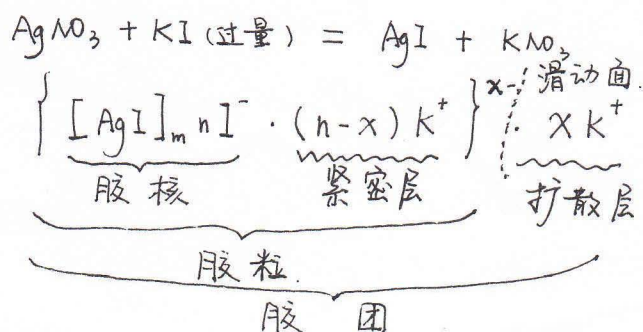 AgNO₃ + KI (过量) = AgI + KNO₃
{[AgI]ₘ nI⁻ · (n-x) K⁺}ˣ⁻ · xK⁺ 滑动面
胶核 紧密层 扩散层
胶粒
胶团